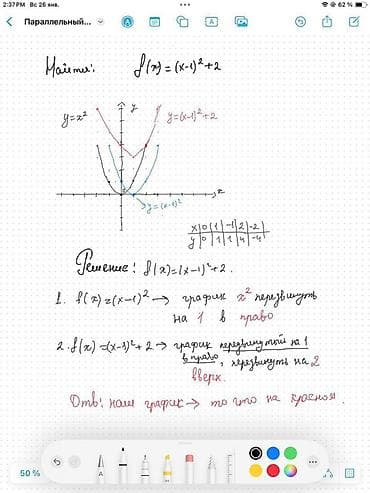 2:37PM Вс 26 янв.
62 %
Параллельный...
Найти: f(x)=(x-1)²+2
y=x²
y
y=(x-1)²+2
x
y=(x-1)²
x|0|1|-1|2|-2|
y|0|1|1|4|-4|
Решение: f(x)=(x-1)²+2.
1. f(x)=(x-1)² → график x² передвинуть
на 1 в право
2. f(x)=(x-1)²+2 → график передвинутой на 1
в право, передвинуть на 2
вверх.
Отв: наш график → то что на красном.
50 %